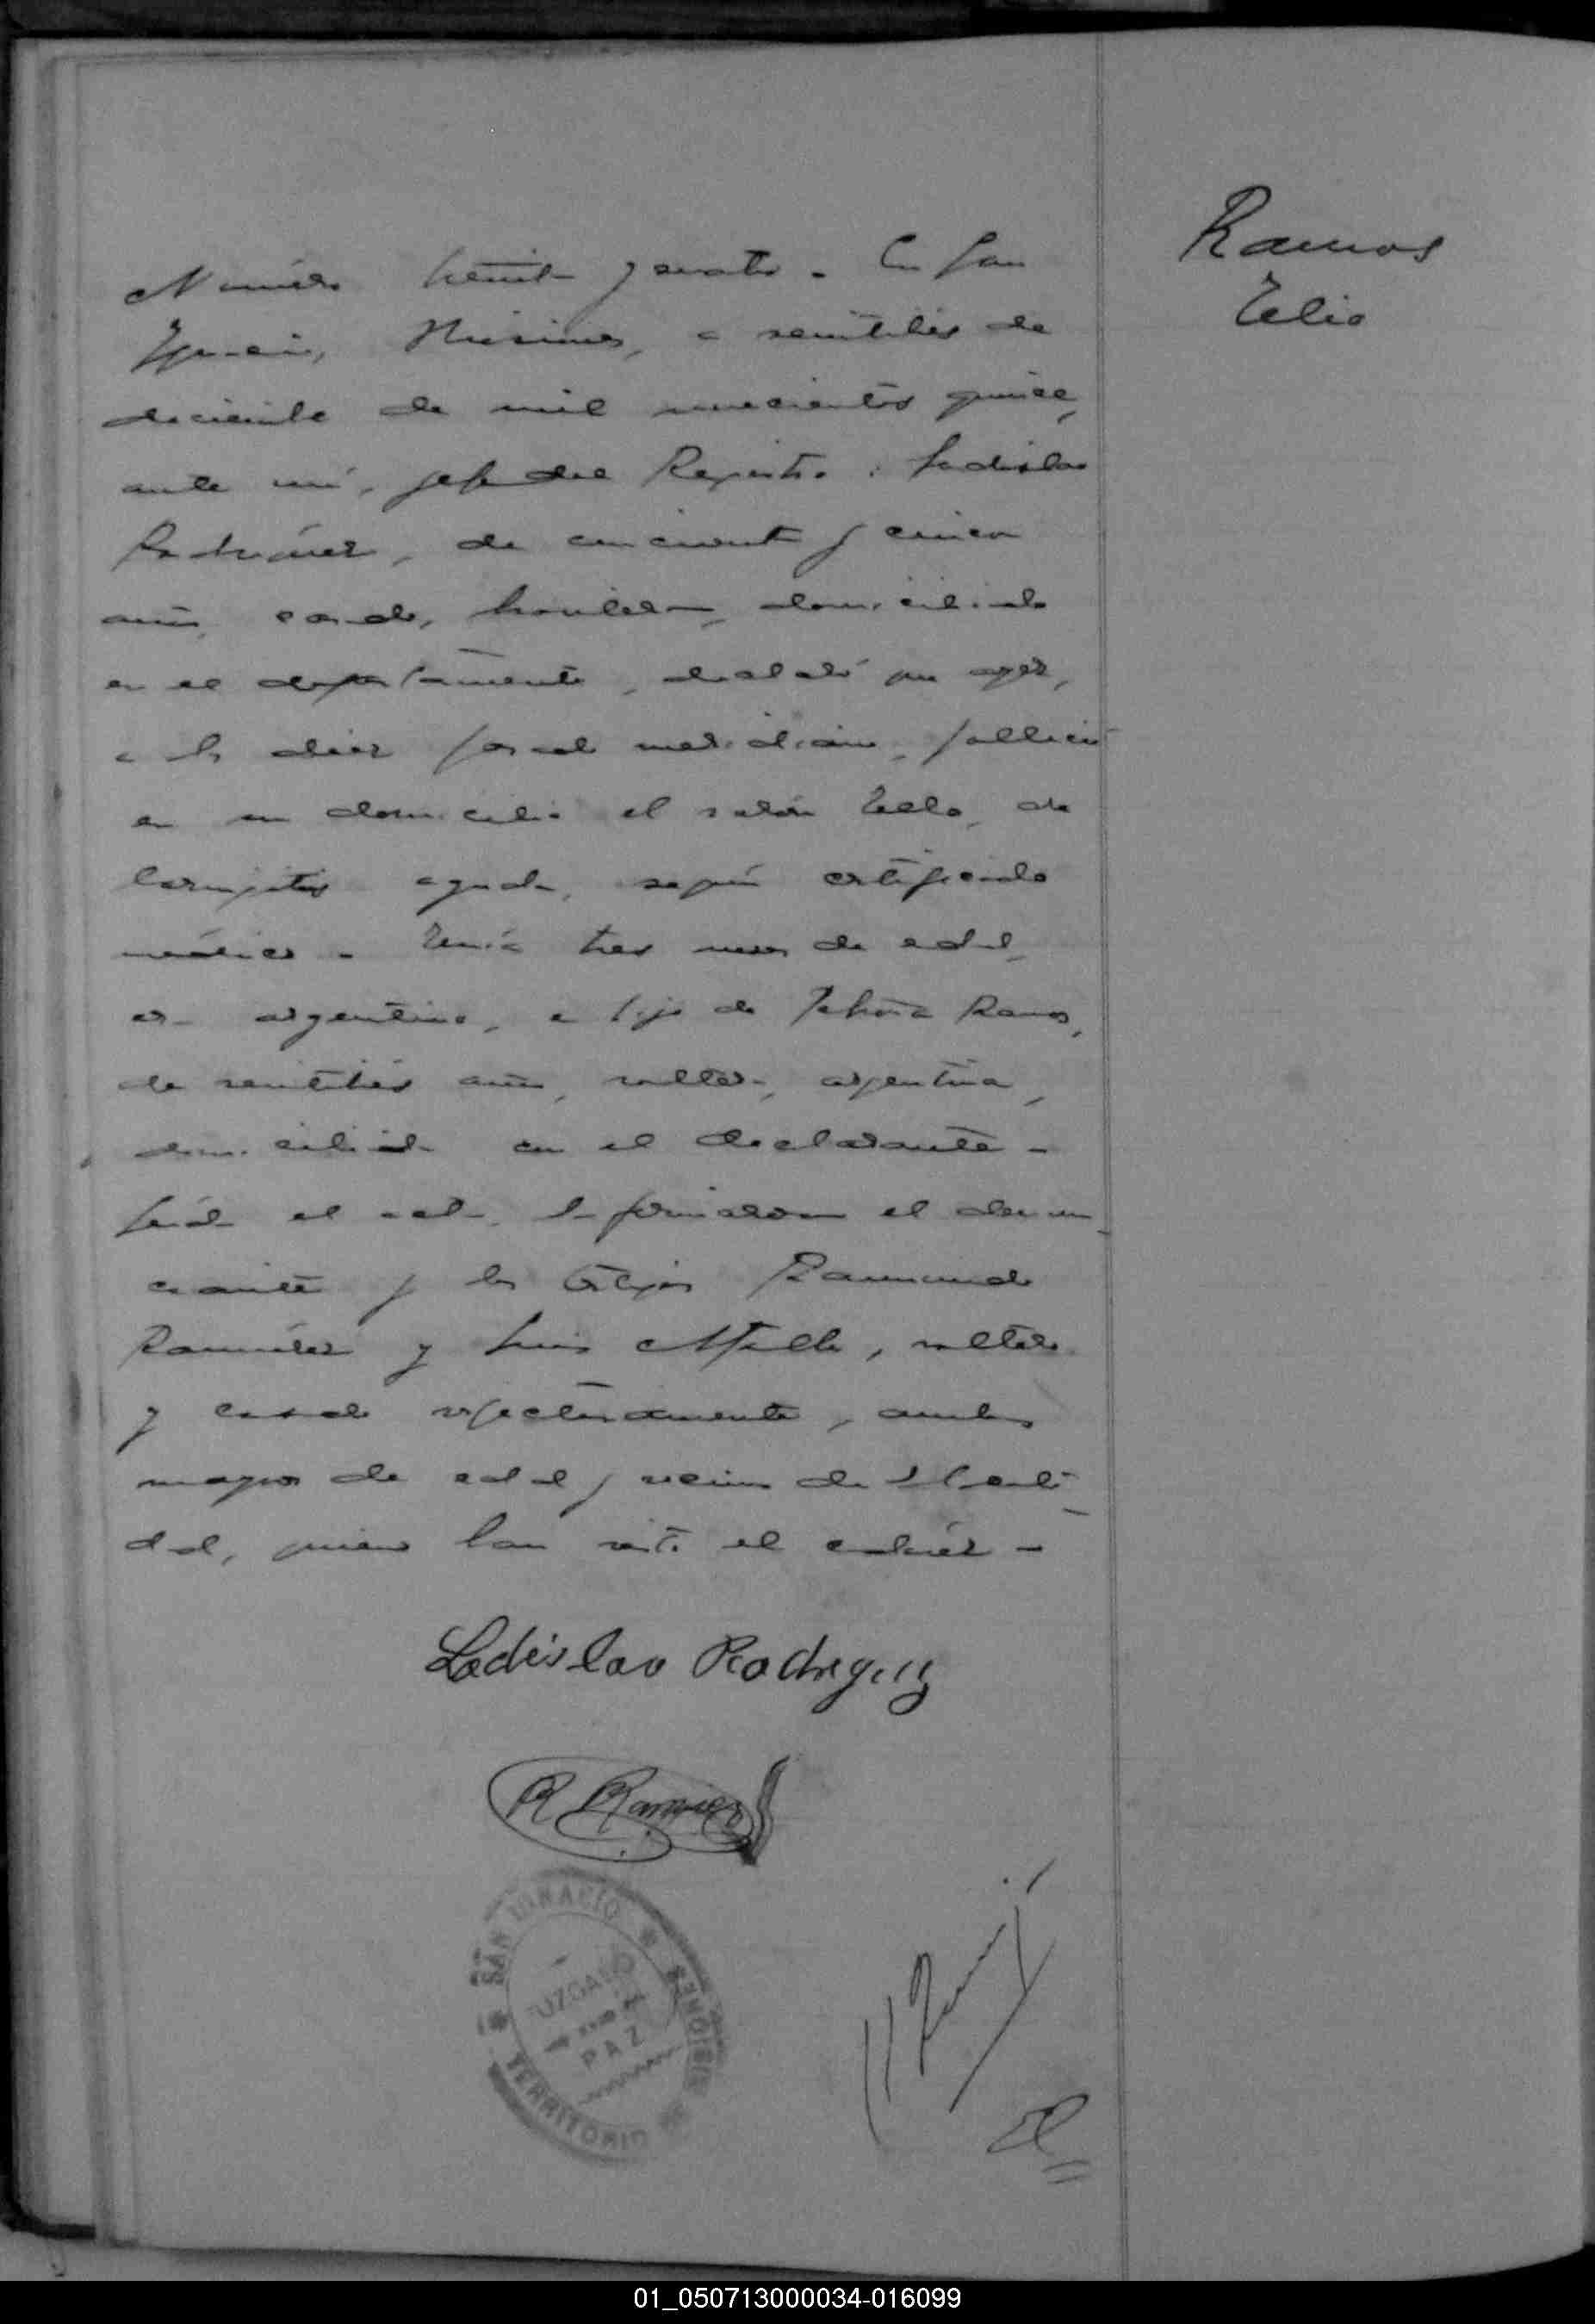 Ramos
Telio
Número treinta y cuatro. En San
Ignacio, Misiones, a veintitrés de
diciembre de mil novecientos quince,
ante mí, jefe del Registro: Ladislao
Rodríguez, de cincuenta y cinco
años, casado, domiciliado
en el departamento, declaró que ayer,
a las diez pasado meridiano, falleció
en su domicilio el varón de
laringitis aguda, según certificado
médico. Tenía tres meses de edad,
era argentino, e hijo de Ramos,
de veintitrés años, soltera, argentina,
domiciliada en el declarante.
Leída el acta, la firmaron el denun
ciante y los testigos Raimundo
Ramírez y Luis soltero
y casado respectivamente, ambos
mayores de edad y vecinos de esta locali
dad, quienes han visto el cadáver.
Ladislao Rodriguez
R Ramirez
SAN IGNACIO
JUZGADO
PAZ
TERRITORIO
MISIONES
01_050713000034-016099